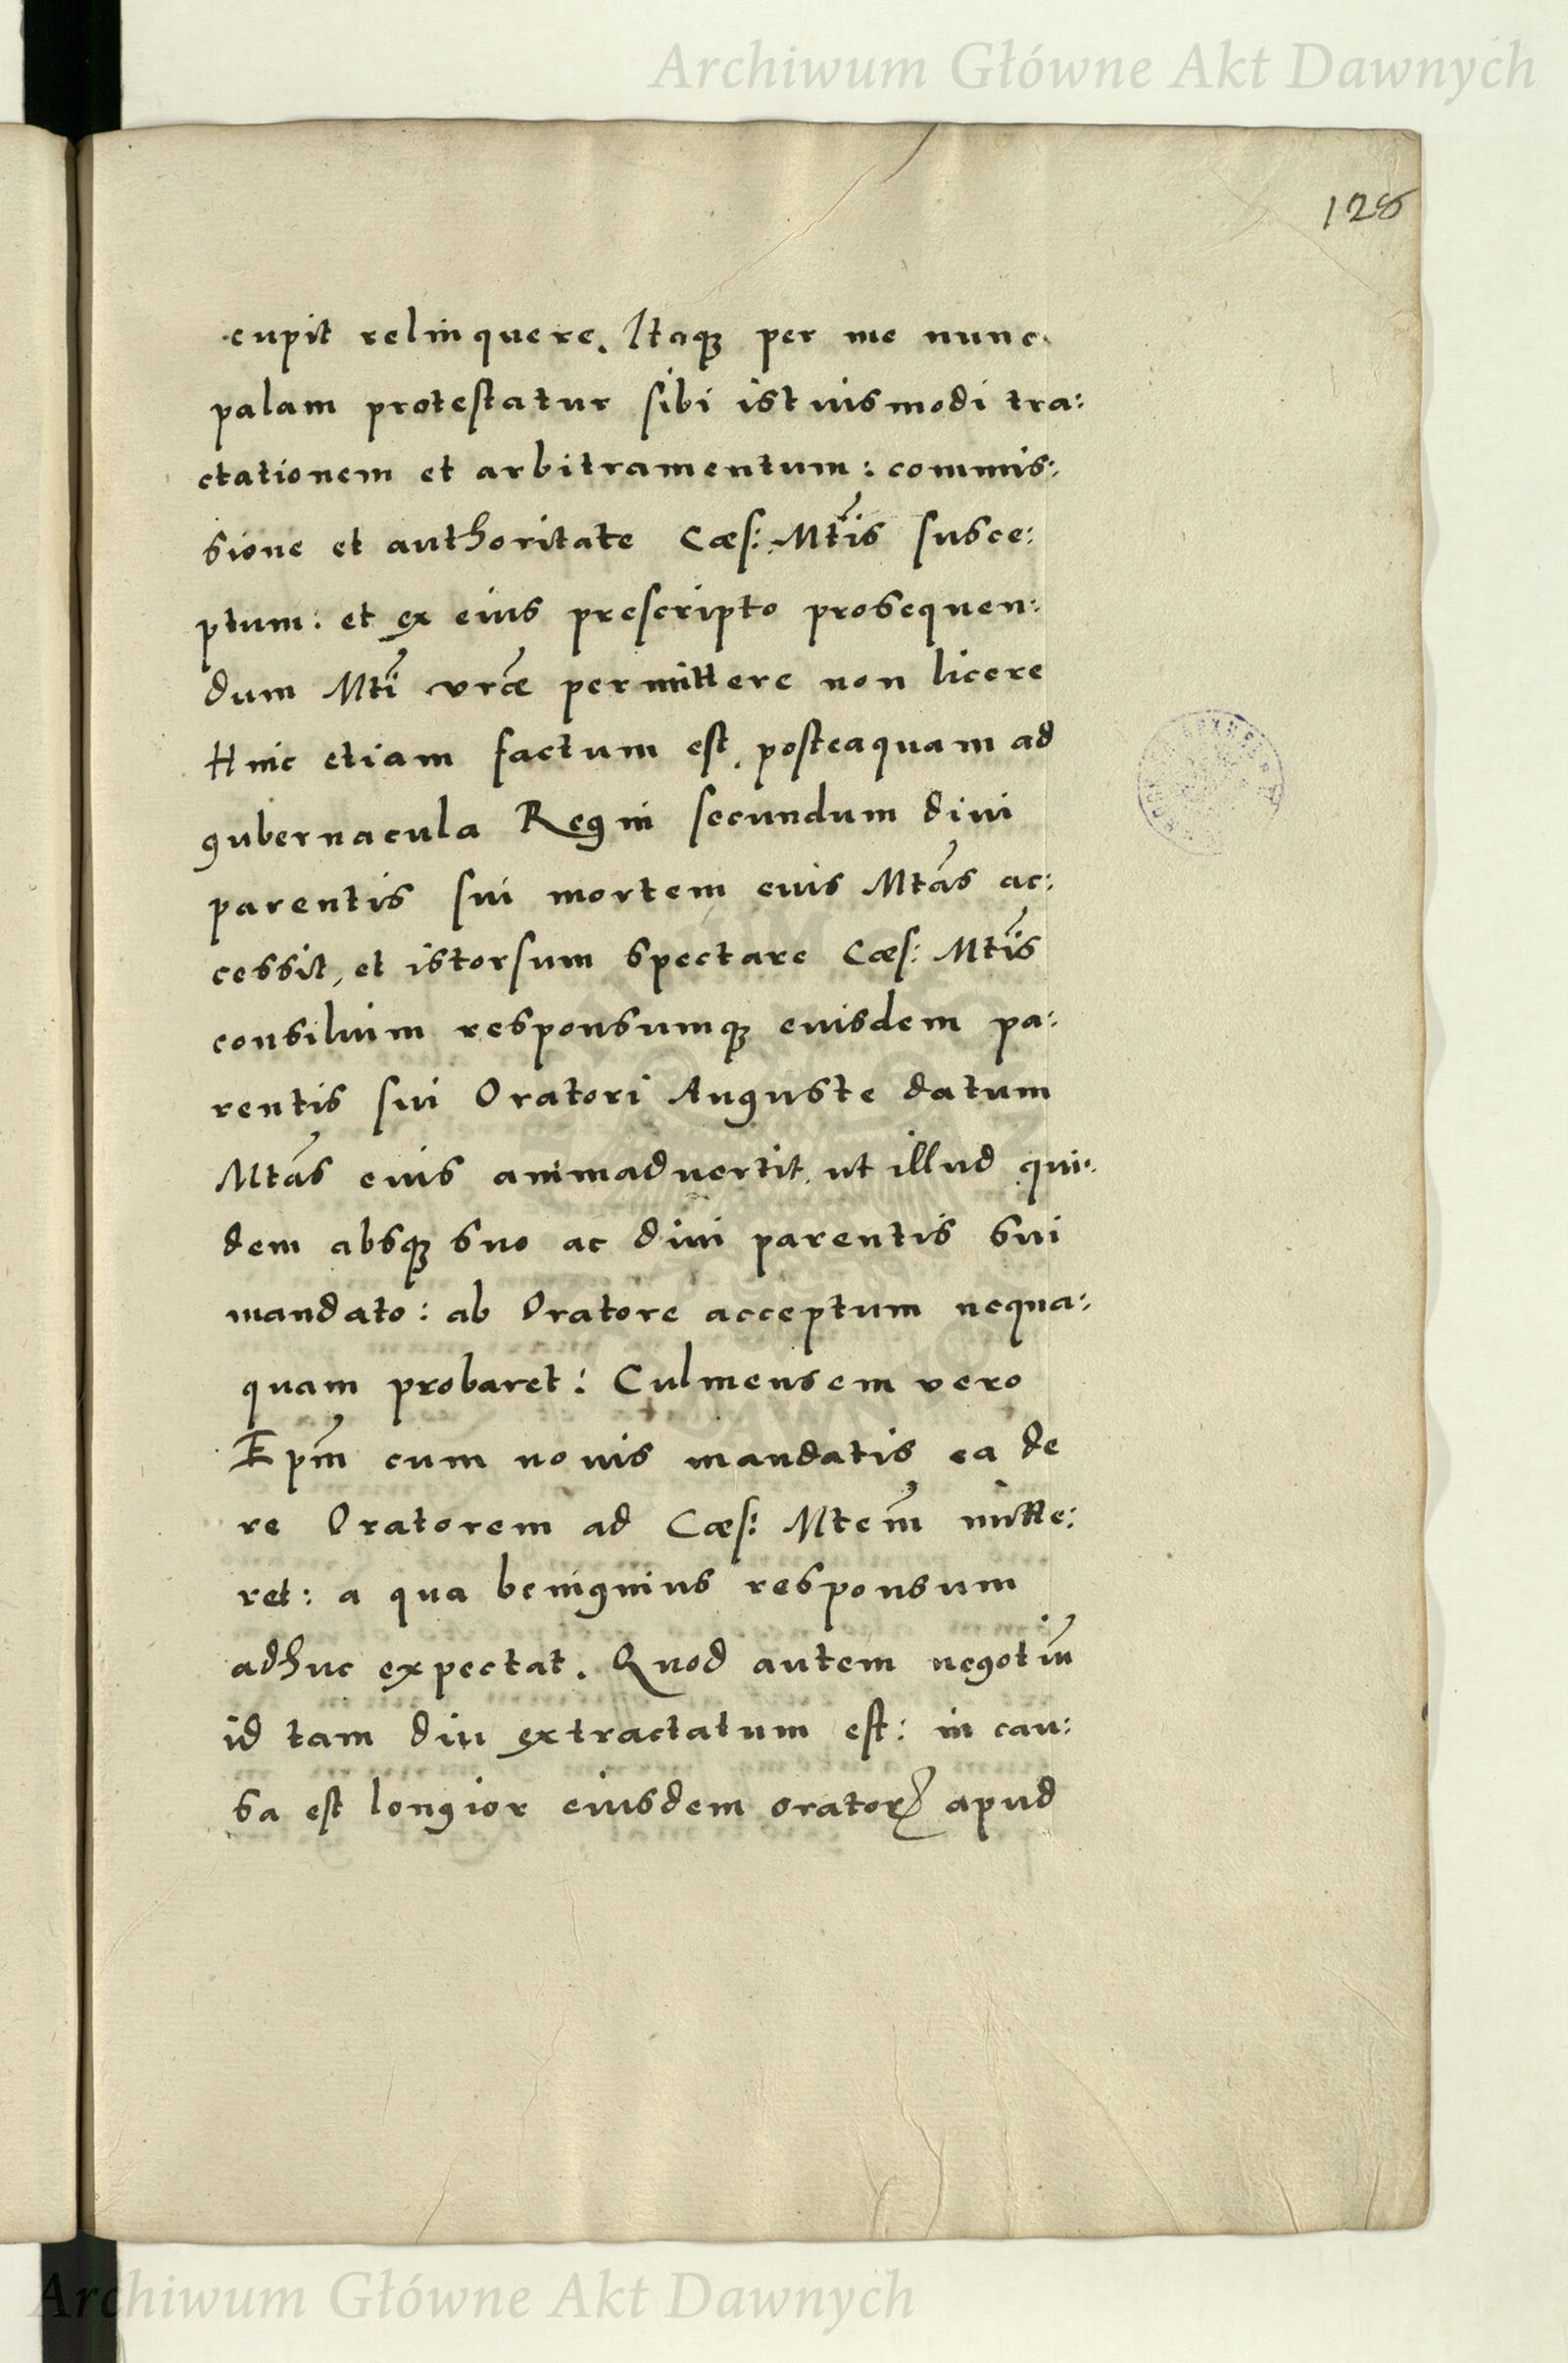 Archiwum Główne Akt Dawnych
128
cupit relinquere. Itaqꝫ per me nunc
palam protestatur sibi istiusmodi tra:
ctationem et arbitramentum: commis:
sione et authoritate Cæs: Mtis susce:
ptum: et ex eius prescripto prosequen:
dum Mti vræ permittere non licere
Hinc etiam factum est, posteaquam ad
gubernacula Regni secundum diui
parentis sui mortem eius Mtas ac:
cessit, et istorsum spectare Cæs: Mtis
consilium responsumqꝫ eiusdem pa:
rentis sui Oratori Auguste datum
Mtas eius animaduertit, ut illud qui:
dem absqꝫ suo ac diui parentis sui
mandato: ab Oratore acceptum nequa:
quam probaret: Culmensem vero
Epm cum nouis mandatis ea de
re Oratorem ad Cæs: Mtem mitte:
ret: a qua benignius responsum
adhuc expectat. Quod autem negotiū
id tam diu extractatum est: in cau:
sa est longior eiusdem oratorꝭ apud
Archiwum Główne Akt Dawnych